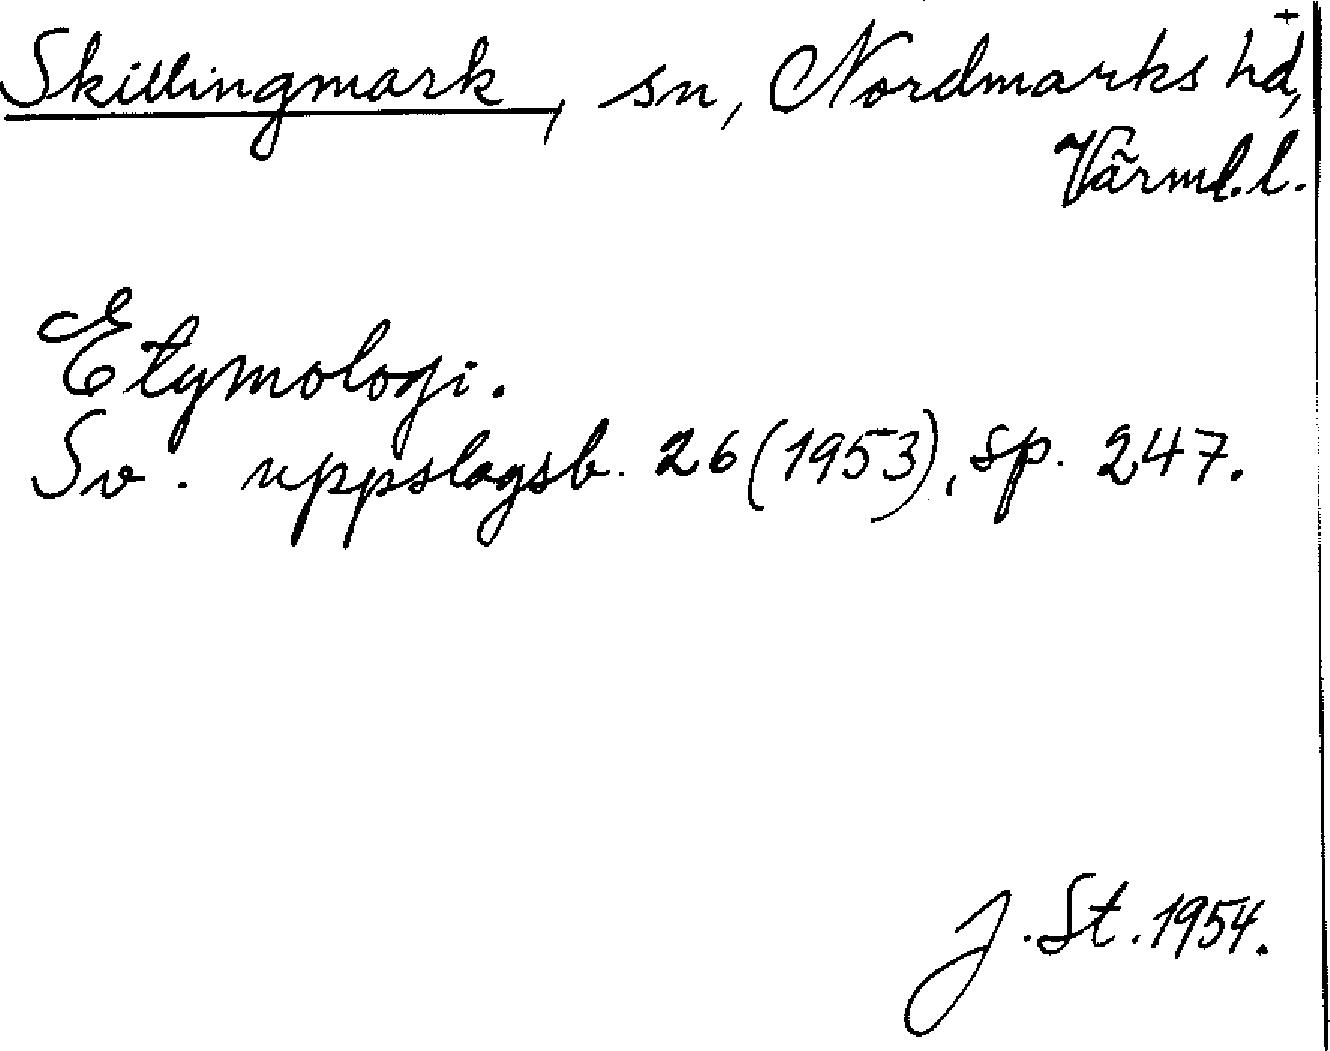 Skillingmark, sn, Nordmarks hd,
Värml. l.
Etymologi.
Sv. uppslagsb. 26 (1953), sp. 247.
J. St. 1954.